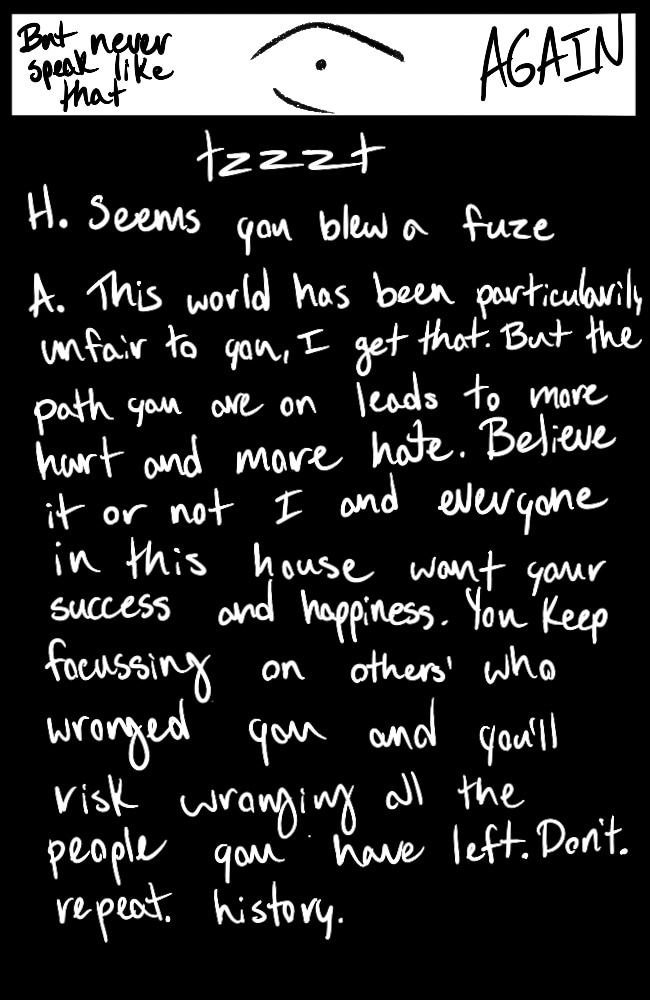 But never
speak like
that
AGAIN
tzzzt
H. Seems you blew a fuze
A. This world has been particularily
unfair to you, I get that. But the
path you are on leads to more
hurt and more hate. Believe
it or not I and everyone
in this house want your
success and happiness. You Keep
focussing on others' who
wronged you and you'll
risk wronging all the
people you have left. Don't.
repeat. history.